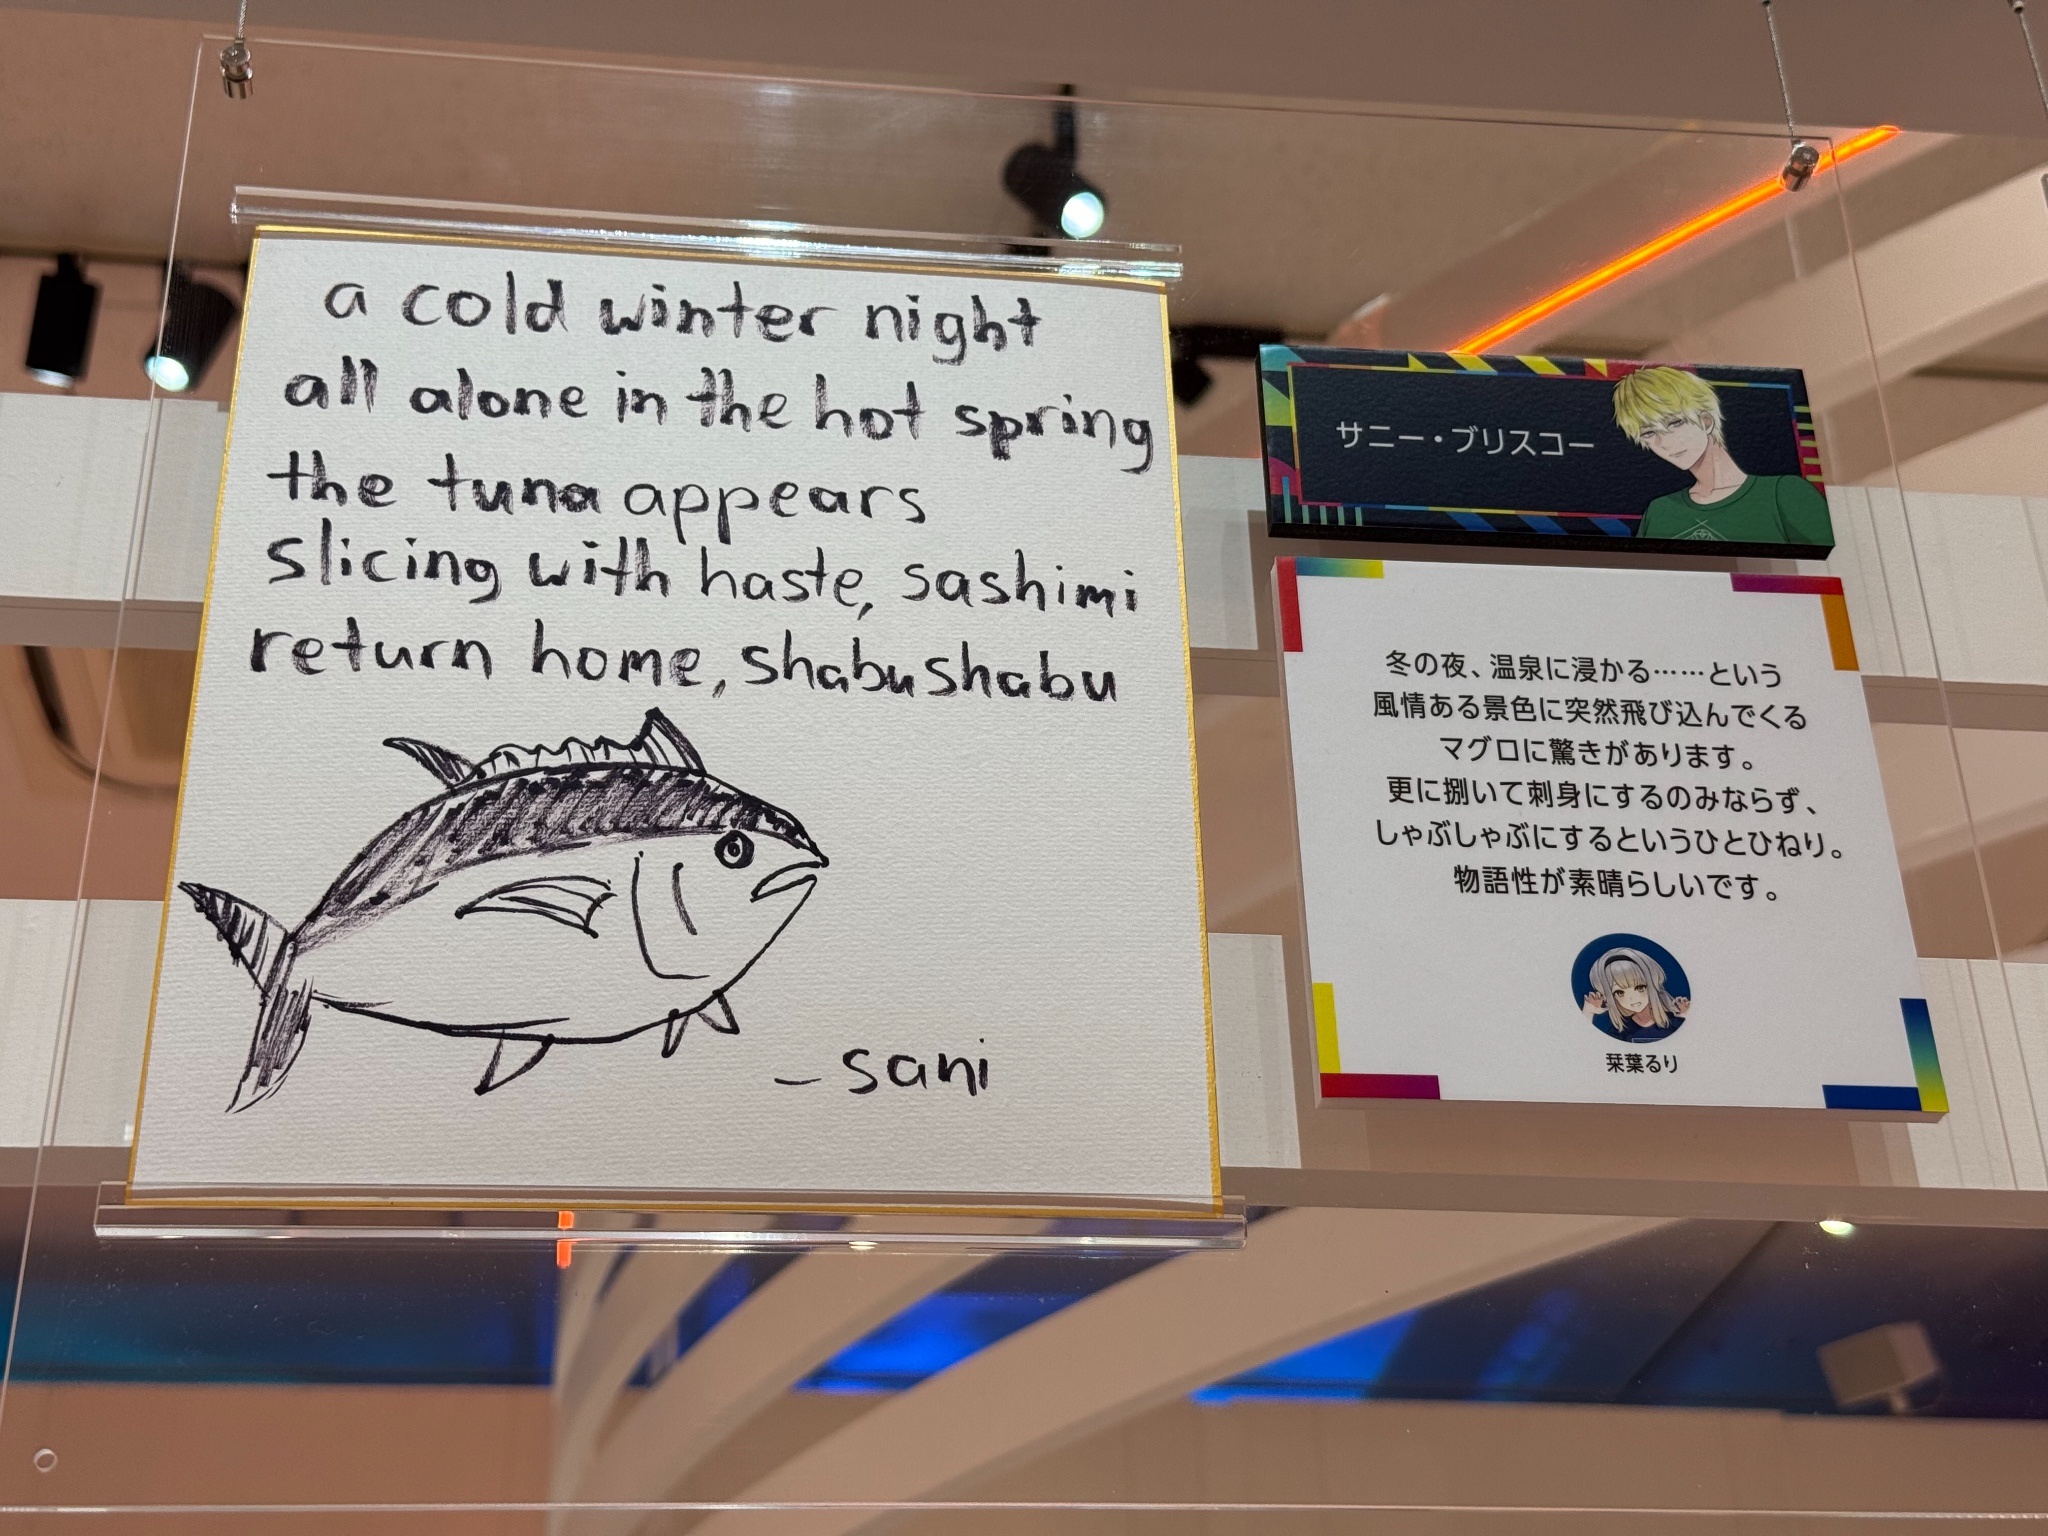 a cold winter night
all alone in the hot spring
the tuna appears
slicing with haste, sashimi
return home, shabushabu
– sani
サニー・ブリスコー
冬の夜、温泉に浸かる……という
風情ある景色に突然飛び込んでくる
マグロに驚きがあります。
更に捌いて刺身にするのみならず、
しゃぶしゃぶにするというひとひねり。
物語性が素晴らしいです。
栞葉るり